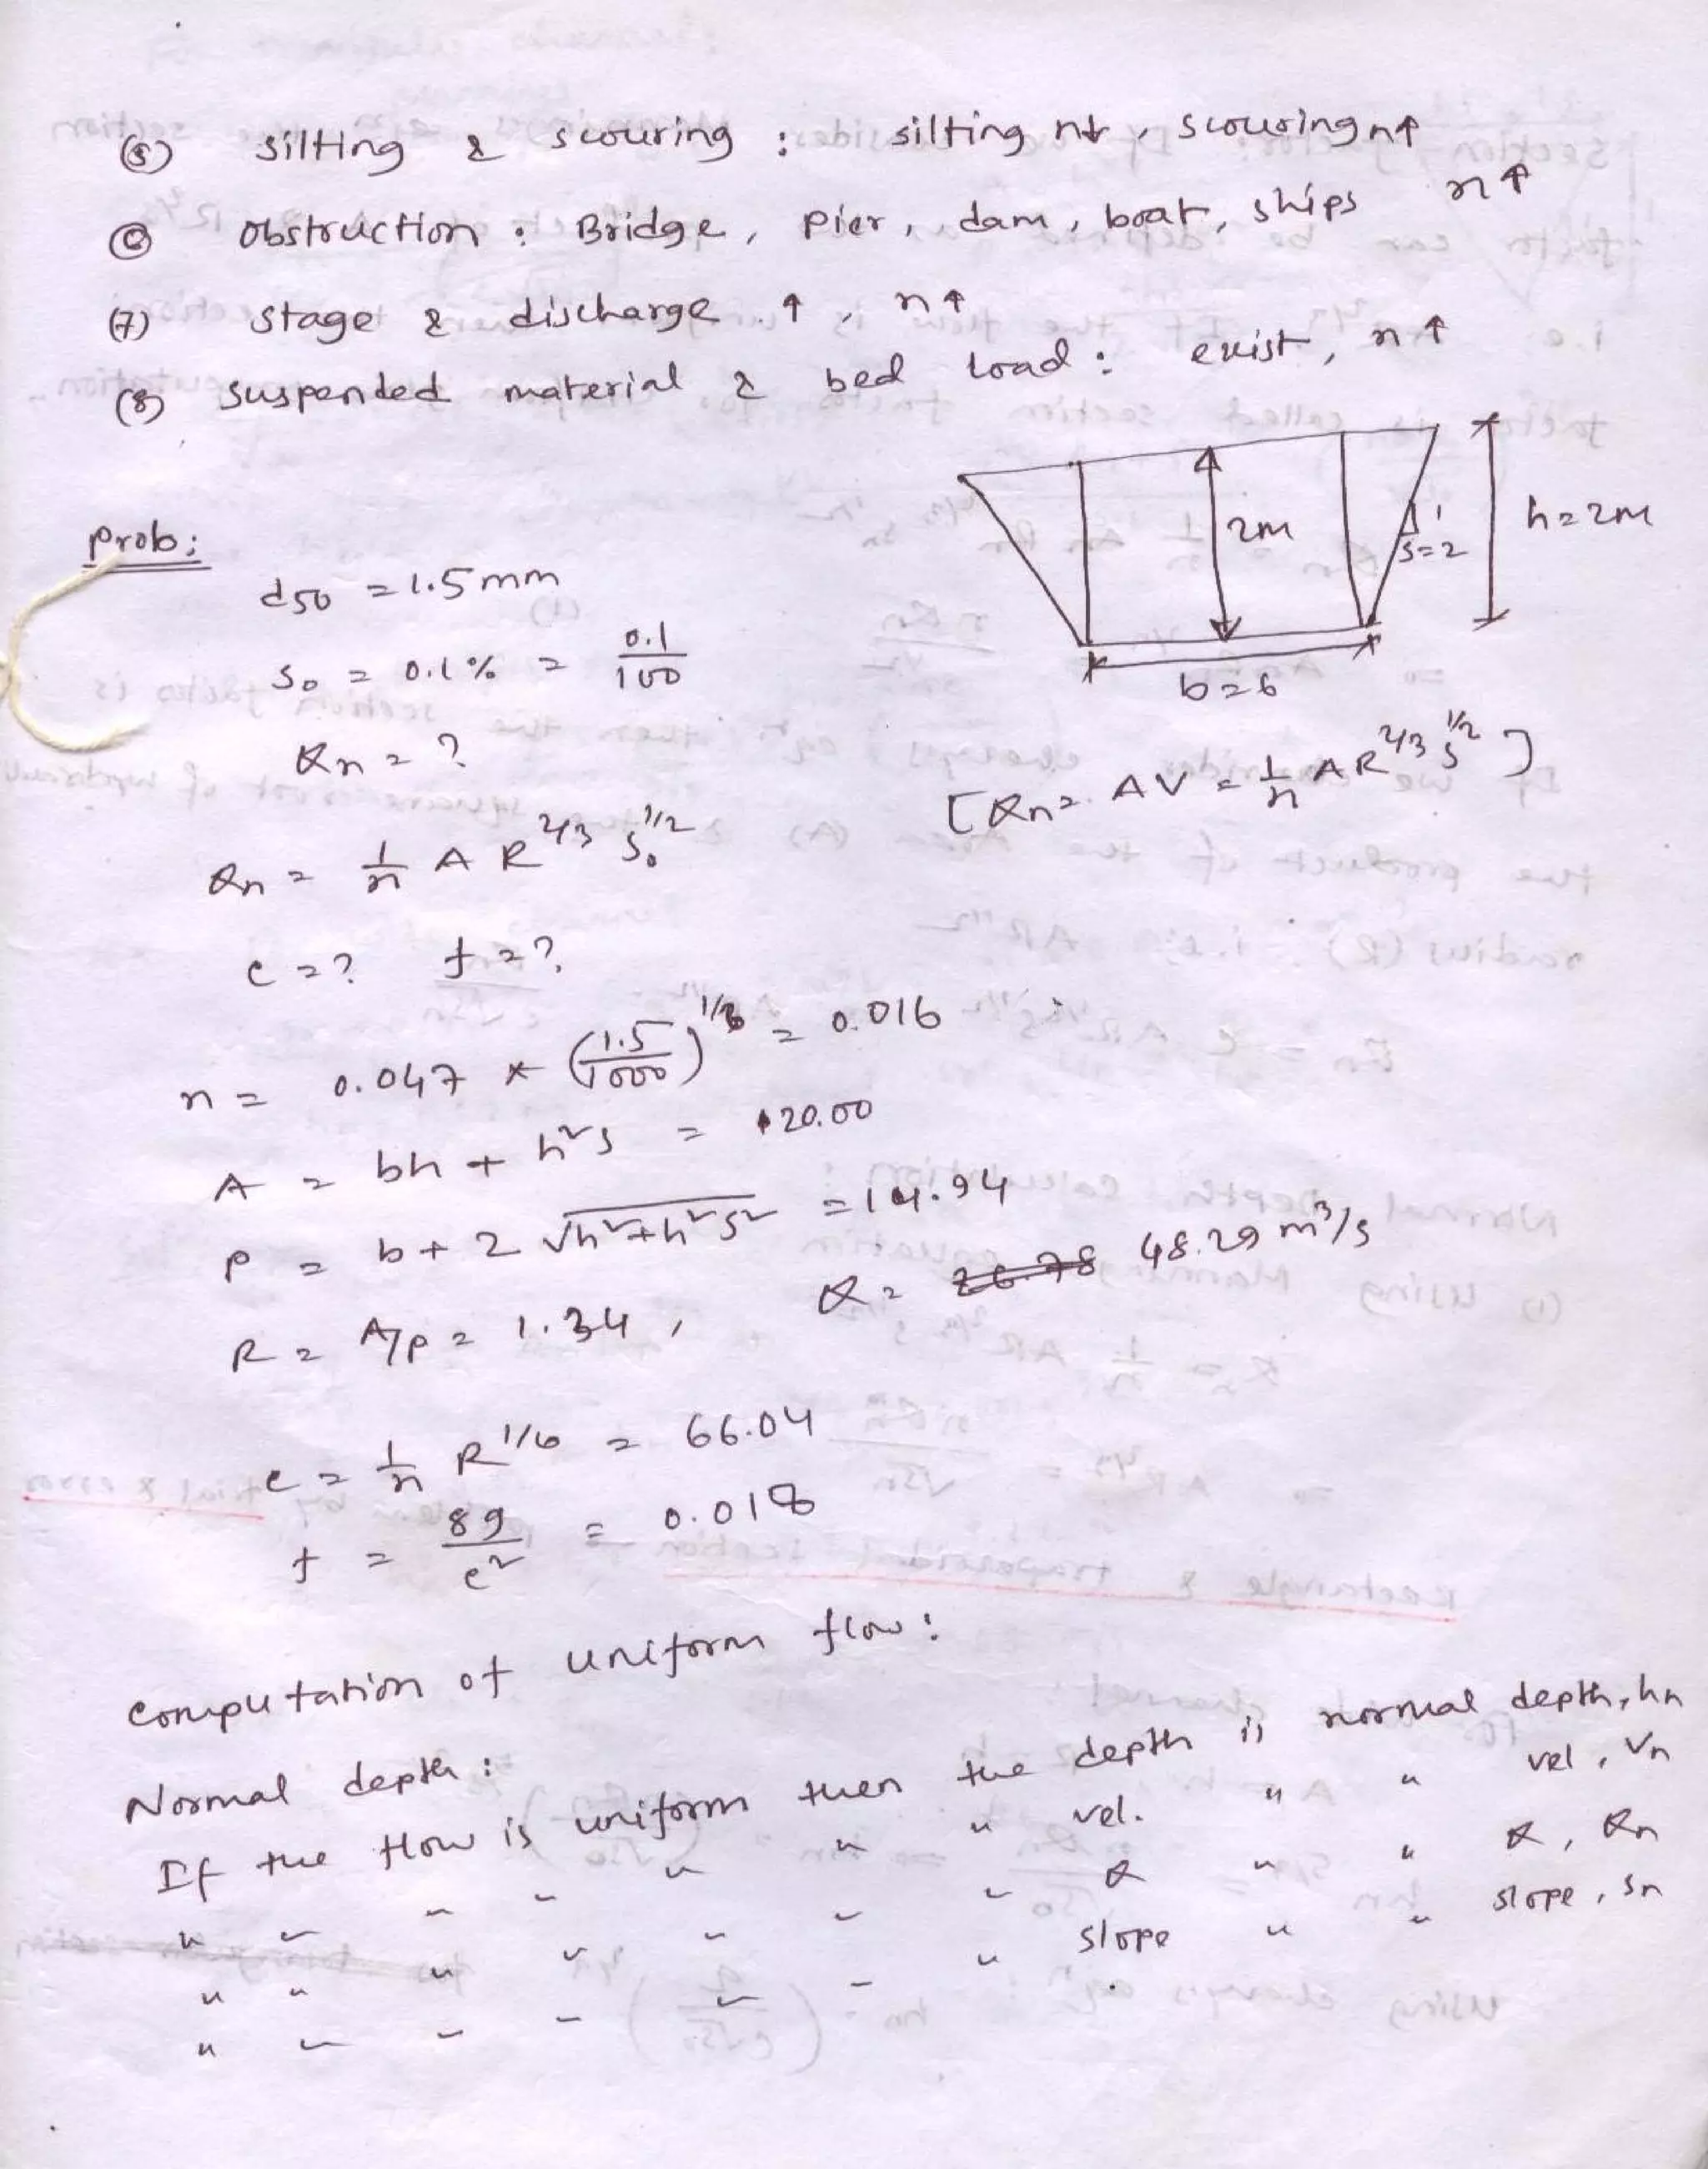 (5) silting & scouring : silting n↓, scouring n↑
(6) obstruction : Bridge, pier, dam, boat, ships n↑
(7) stage & discharge ↑, n↑
(8) suspended material & bed load : exist, n↑
2m
1
s=2
h=2m
b=6
Prob:
d50 = 1.5mm
S0 = 0.1% = 0.1/100
Qn = ?
[Qn = AV = 1/n A R^2/3 S^1/2]
Qn = 1/n A R^2/3 S0^1/2
c = ? f = ?
n = 0.047 * (1.5/1000)^1/6 = 0.016
A = bh + h²s = 20.00
P = b + 2 √h²+h²s² = 14.94
R = A/P = 1.34, Q = 26.78 48.29 m³/s
c = 1/n R^1/6 = 66.04
f = 8g/c² = 0.018
Computation of uniform flow:
Normal depth:
If the flow is uniform then the depth is normal depth, hn
" " " " " " " vel. " " vel, Vn
" " " " " " " Q " " Q, Qn
" " " " " " " slope " " slope, Sn